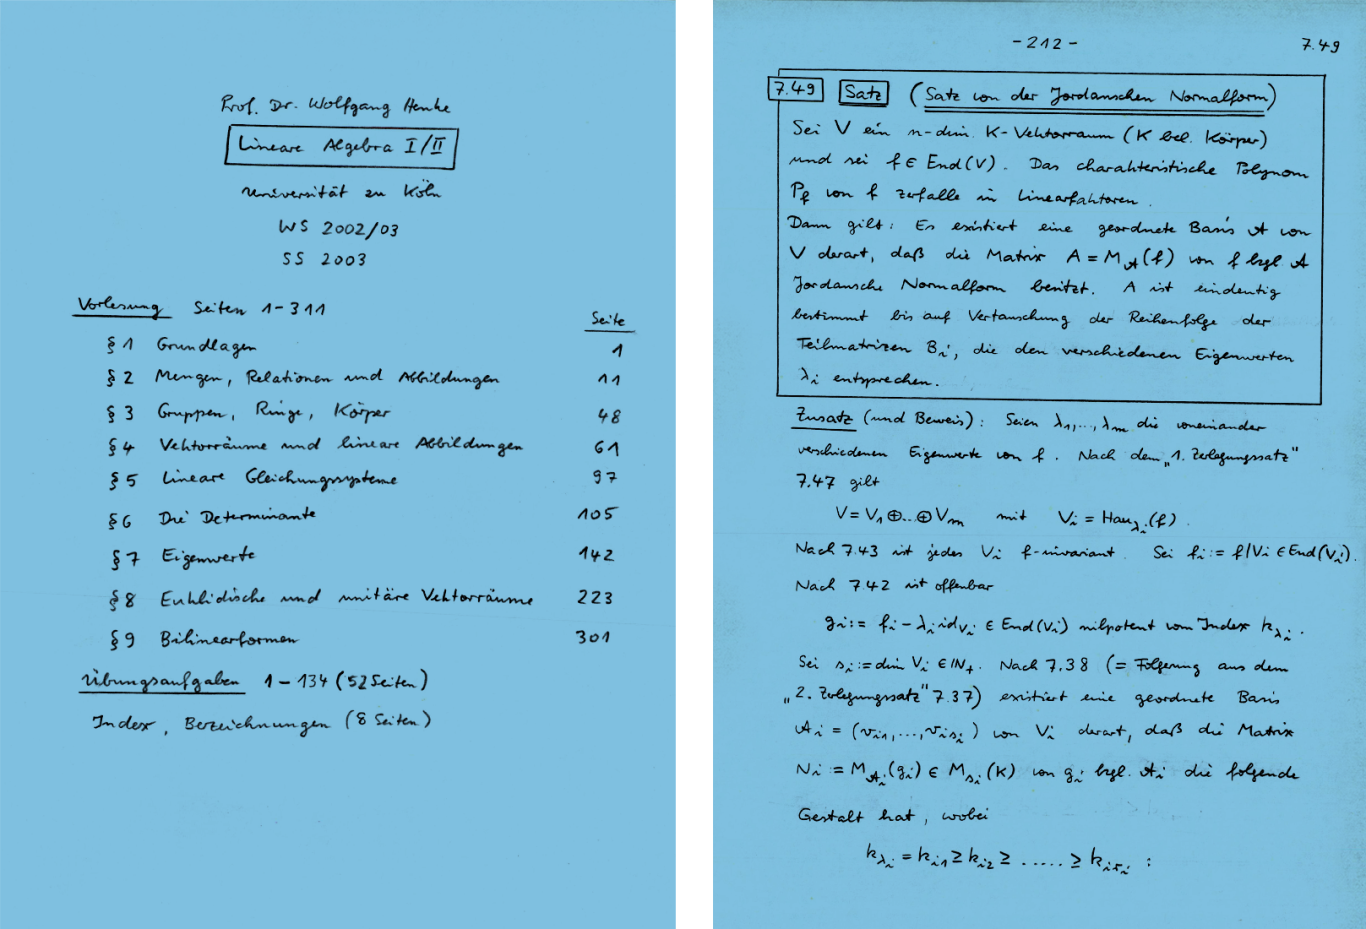 Prof. Dr. Wolfgang Henke
Lineare Algebra I/II
Universität zu Köln
WS 2002/03
SS 2003
Vorlesung Seiten 1-311
Seite
§ 1 Grundlagen 1
§ 2 Mengen, Relationen und Abbildungen 11
§ 3 Gruppen, Ringe, Körper 48
§ 4 Vektorräume und lineare Abbildungen 61
§ 5 Lineare Gleichungssysteme 97
§ 6 Die Determinante 105
§ 7 Eigenwerte 142
§ 8 Euklidische und unitäre Vektorräume 223
§ 9 Bilinearformen 301
Übungsaufgaben 1-134 (52 Seiten)
Index, Bezeichnungen (8 Seiten)
-212- 7.49
7.49 Satz (Satz von der Jordanschen Normalform)
Sei V ein n-dim. K-Vektorraum (K bel. Körper)
und sei f ∈ End(V). Das charakteristische Polynom
P_f von f zerfalle in Linearfaktoren.
Dann gilt: Es existiert eine geordnete Basis 𝒜 von
V derart, daß die Matrix A = M_𝒜(f) von f bzgl. 𝒜
Jordansche Normalform besitzt. A ist eindeutig
bestimmt bis auf Vertauschung der Reihenfolge der
Teilmatrizen B_i, die den verschiedenen Eigenwerten
λ_i entsprechen.
Zusatz (und Beweis): Seien λ_1,...,λ_m die voneinander
verschiedenen Eigenwerte von f. Nach dem „1. Zerlegungssatz"
7.47 gilt
V = V_1 ⊕...⊕ V_m mit V_i = Hau_{λ_i}(f).
Nach 7.43 ist jedes V_i f-invariant. Sei f_i := f/V_i ∈ End(V_i).
Nach 7.42 ist offenbar
g_i := f_i - λ_i id_{V_i} ∈ End(V_i) nilpotent vom Index k_{λ_i}.
Sei s_i := dim V_i ∈ ℕ_+. Nach 7.38 (= Folgerung aus dem
„2. Zerlegungssatz" 7.37) existiert eine geordnete Basis
𝒜_i = (v_{i1},...,v_{is_i}) von V_i derart, daß die Matrix
N_i := M_{𝒜_i}(g_i) ∈ M_{s_i}(K) von g_i bzgl. 𝒜_i die folgende
Gestalt hat, wobei
k_{λ_i} = k_{i1} ≥ k_{i2} ≥ ..... ≥ k_{ir_i} :